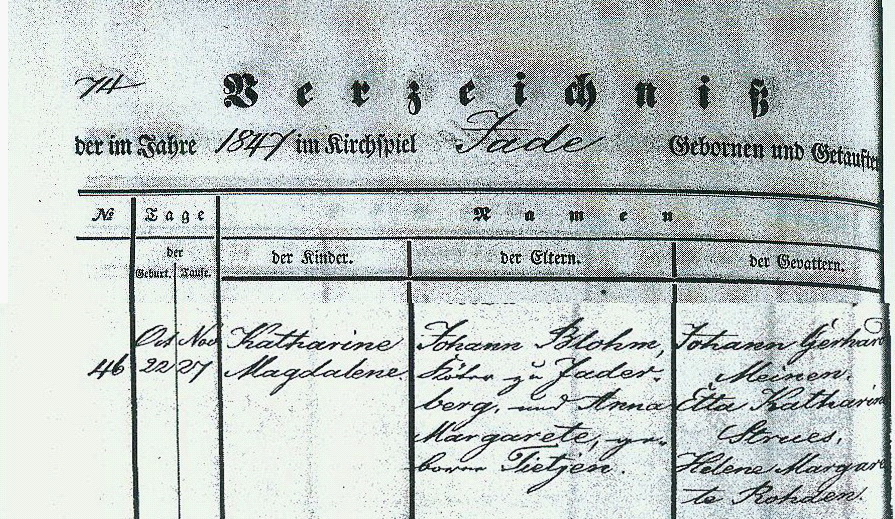 74
Verzeichniß
der im Jahre 1847 im Kirchspiel Jade Gebornen und Getauften
№ Tage Namen
der
Geburt. Taufe. der Kinder. der Eltern. der Gevattern.
Oct Nov Katharine Johann Blohm, Johann Gerhard
46 22 27 Magdalene. Köter zu Jader- Meinen.
berg, und Anna Etta Katharine
Margarete, ge- Strues.
boren Tietjen. Helene Margare
te Rohden.